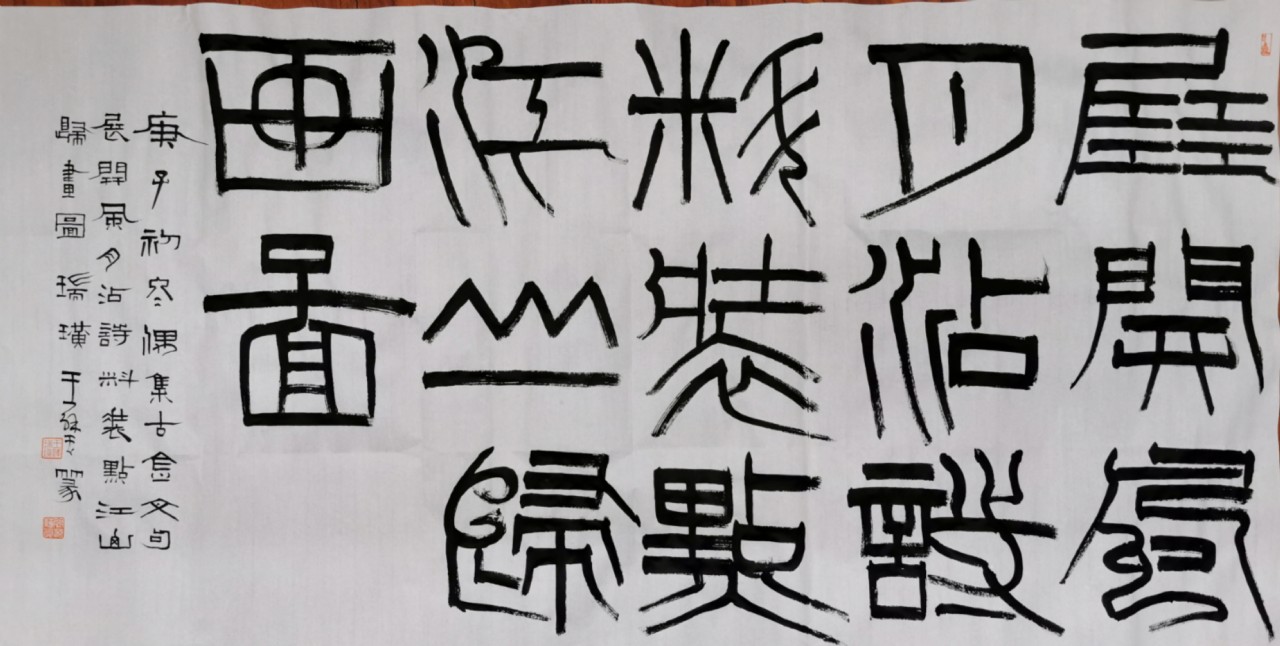 展開風
月沾詩
料裝點
江山歸
畫圖
庚子初冬偶集古金文句
展開風月沾詩料裝點江山
歸畫圖 瑞璜 于 篆